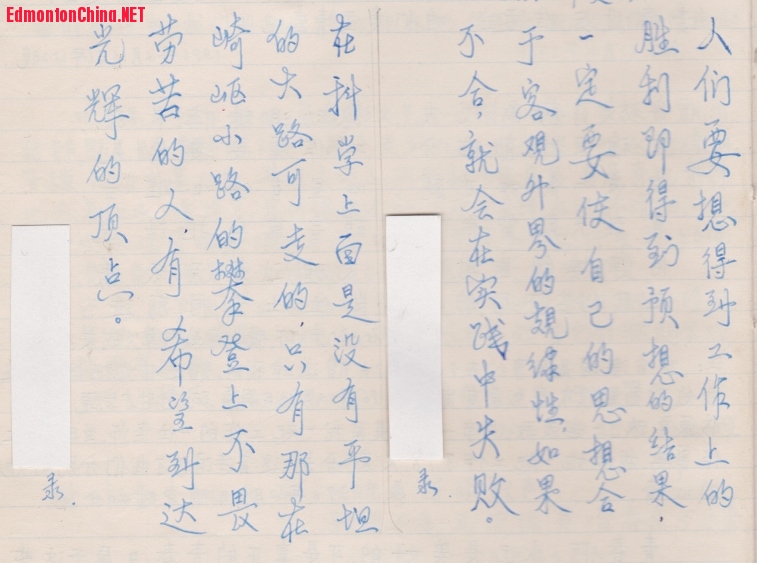 EdmontonChina.NET
人们要想得到工作上的
胜利即得到预想的结果，
一定要使自己的思想合
于客观外界的规律性，如果
不合，就会在实践中失败。
录.
在科学上面是没有平坦
的大路可走的，只有那在
崎岖小路的攀登上不畏
劳苦的人，有希望到达
光辉的顶点。
录.